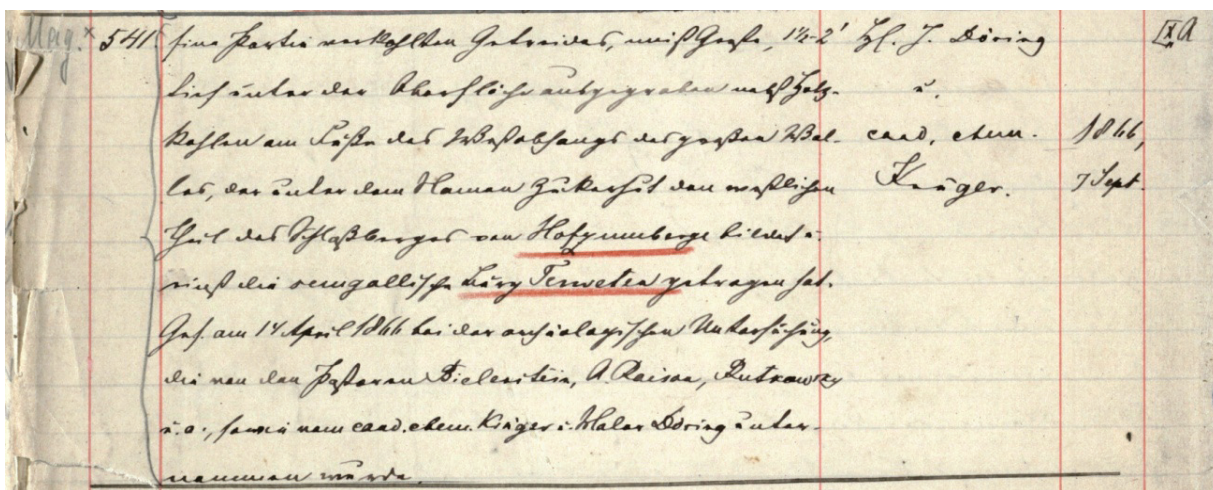 Mag. × 541. Eine Partie verkohlten Getreides, meist Gerste, 1½-2' Hl. J. Döring IX A
tief unter der Oberfläche ausgegraben nebst Holz- u.
kohlen am Fuße des Westabhangs des großen Wal- cand. chem. 1866,
les, der unter dem Namen Zuckerhut den westlichen Krüger. 7 Sept.
Theil des Schloßberges von Hofzumberge bildet u.
einst die semgallische Burg Terweten getragen hat.
Gef. am 14 April 1866 bei der archäologischen Untersuchung,
die von den Pastoren Bielenstein, A. Raison, Rutkowsky
u. a., sowie vom cand. chem. Krüger u. Maler Döring unter-
nommen wurde.